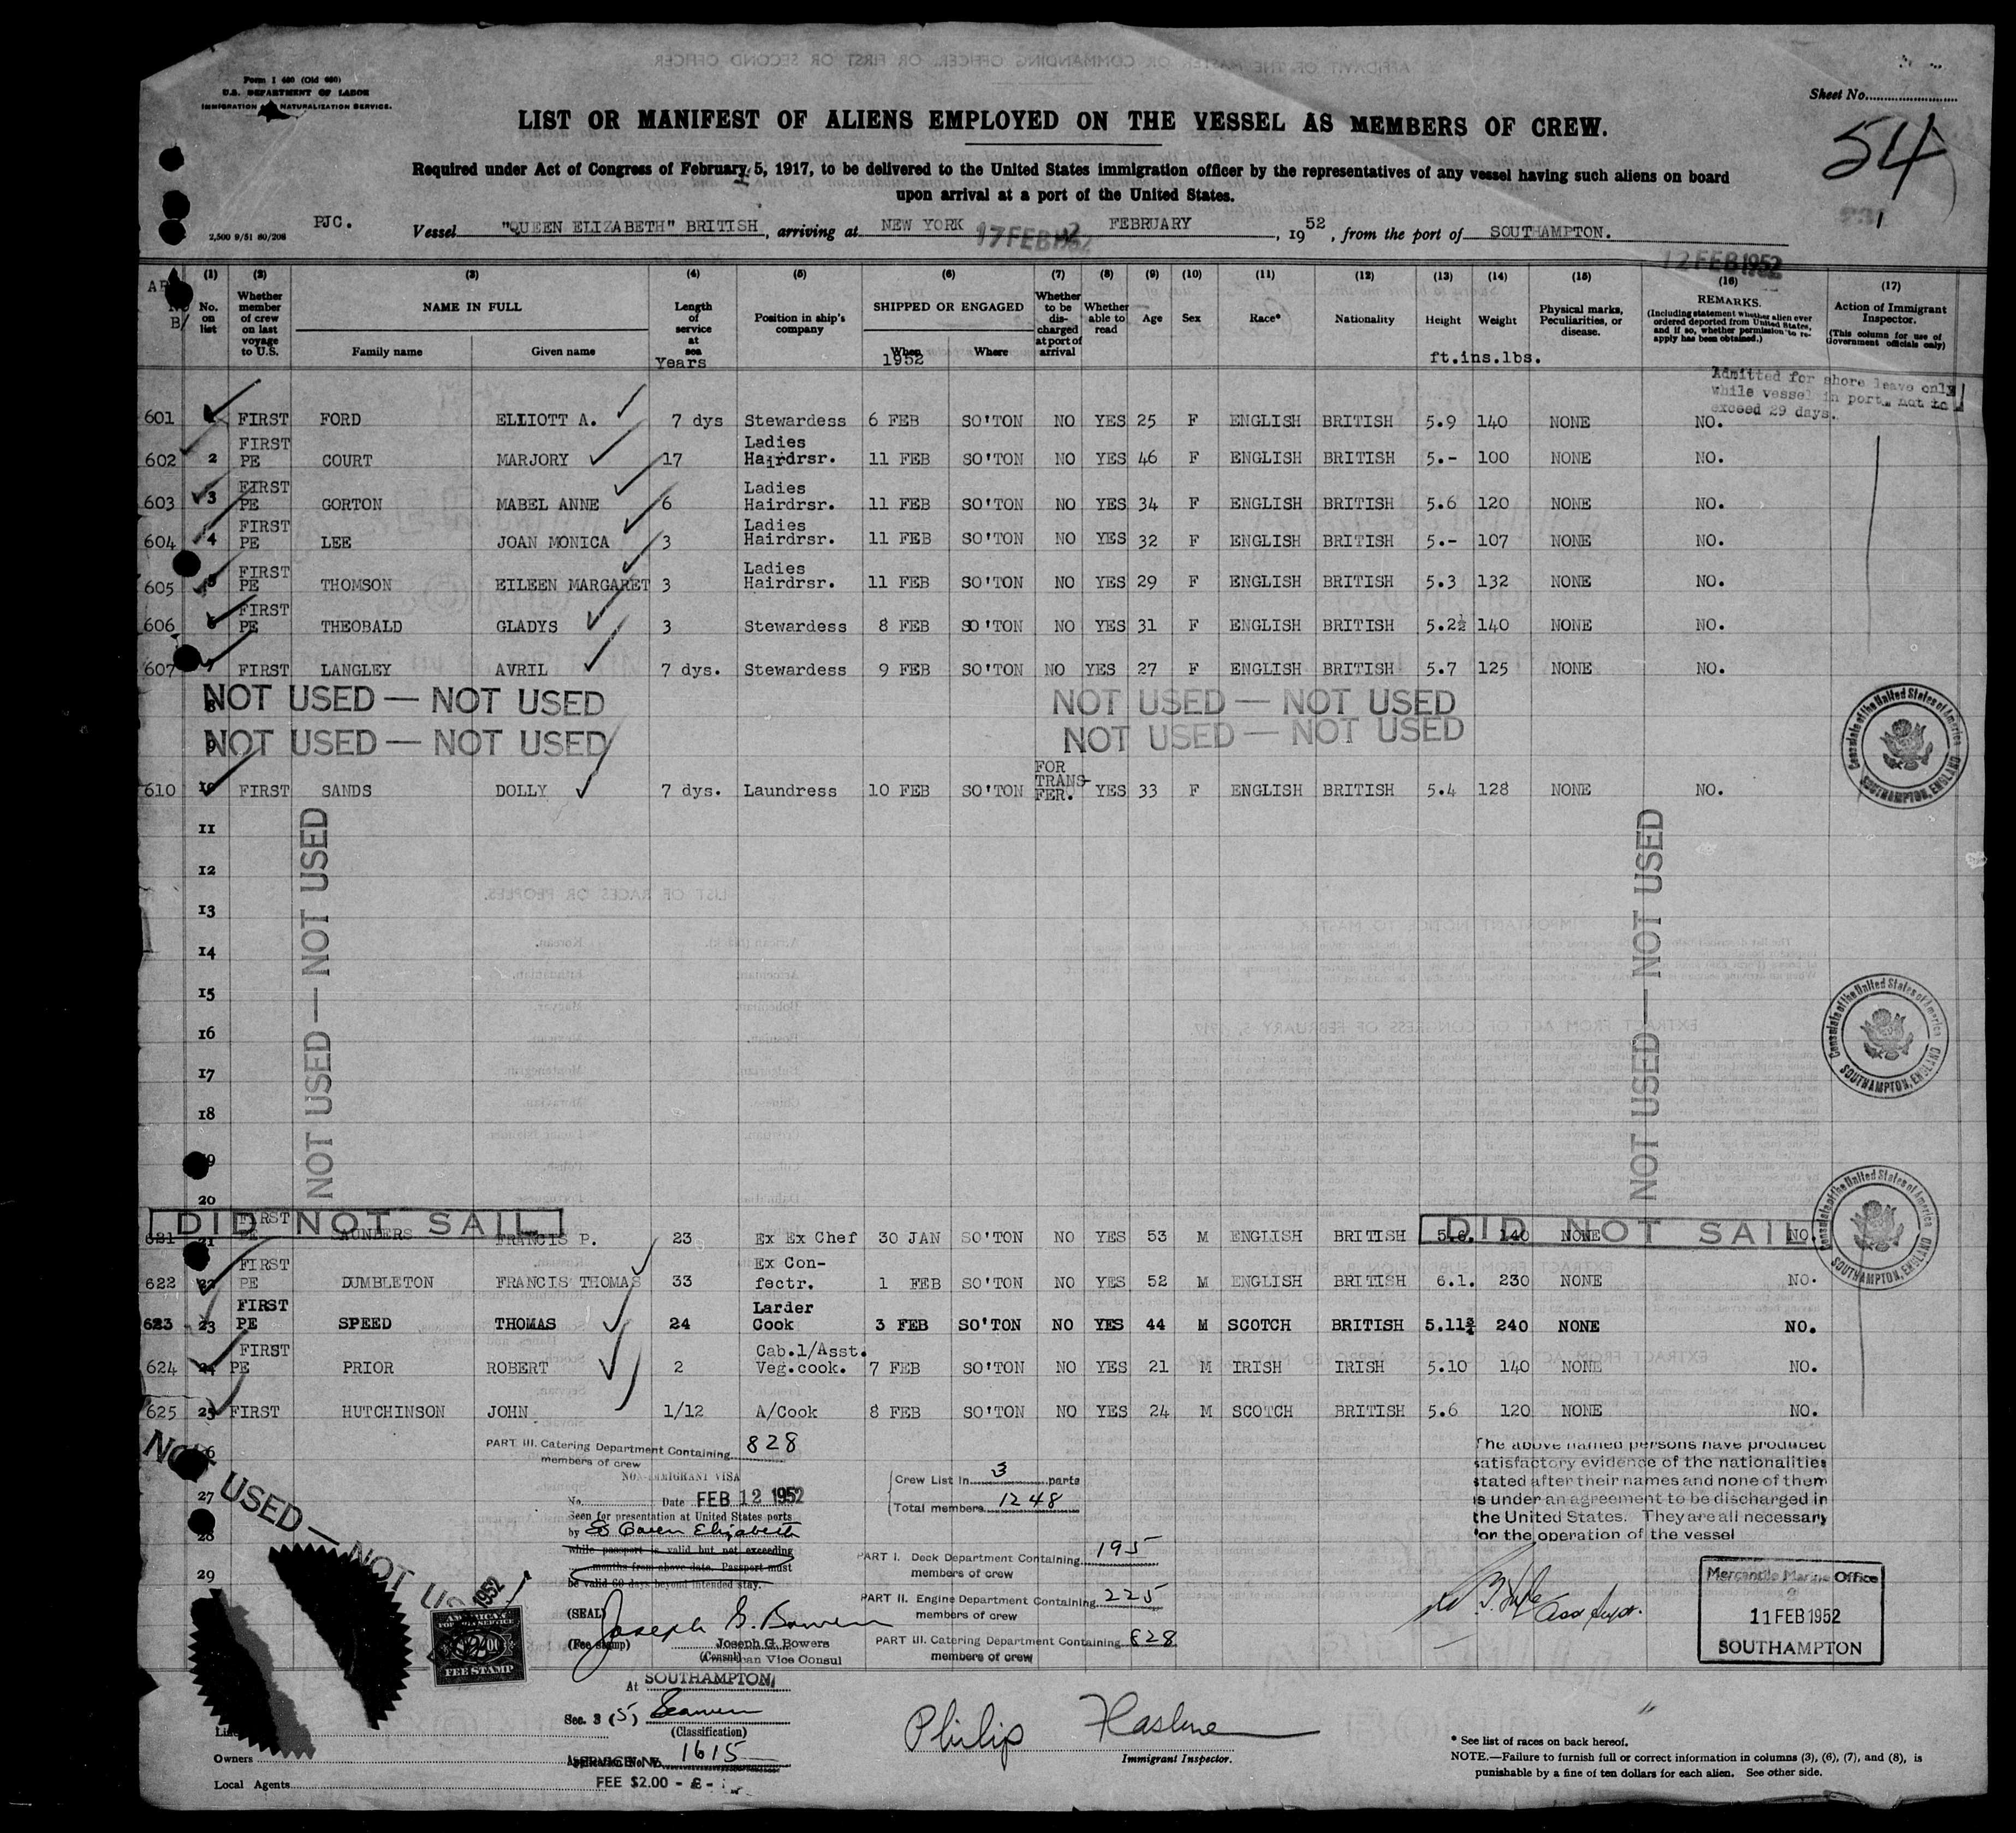 Form I 460 (Old 680)
U.S. DEPARTMENT OF LABOR
IMMIGRATION NATURALIZATION SERVICE.
Sheet No.
54
LIST OR MANIFEST OF ALIENS EMPLOYED ON THE VESSEL AS MEMBERS OF CREW.
Required under Act of Congress of February 5, 1917, to be delivered to the United States immigration officer by the representatives of any vessel having such aliens on board
upon arrival at a port of the United States.
2,500 9/51 80/208 PJC. Vessel "QUEEN ELIZABETH" BRITISH, arriving at NEW YORK FEBRUARY, 1952, from the port of SOUTHAMPTON.
17 FEB 1952
12 FEB 1952
(1) No. on list
(2) Whether member of crew on last voyage to U.S.
(3) NAME IN FULL Family name Given name
(4) Length of service at sea Years
(5) Position in ship's company
(6) SHIPPED OR ENGAGED When 1952 Where
(7) Whether to be discharged at port of arrival
(8) Whether able to read
(9) Age
(10) Sex
(11) Race*
(12) Nationality
(13) Height ft.ins.
(14) Weight lbs.
(15) Physical marks, Peculiarities, or disease.
(16) REMARKS. (Including statement whether alien ever ordered deported from United States, and if so, whether permission to reapply has been obtained.)
(17) Action of Immigrant Inspector. (This column for use of Government officials only)
Admitted for shore leave only
while vessel in port, not to
exceed 29 days.
601 FIRST FORD ELLIOTT A. 7 dys Stewardess 6 FEB SO'TON NO YES 25 F ENGLISH BRITISH 5.9 140 NONE NO.
602 2 FIRST PE COURT MARJORY 17 Ladies Hairdrsr. 11 FEB SO'TON NO YES 46 F ENGLISH BRITISH 5.- 100 NONE NO.
603 3 FIRST PE GORTON MABEL ANNE 6 Ladies Hairdrsr. 11 FEB SO'TON NO YES 34 F ENGLISH BRITISH 5.6 120 NONE NO.
604 4 FIRST PE LEE JOAN MONICA 3 Ladies Hairdrsr. 11 FEB SO'TON NO YES 32 F ENGLISH BRITISH 5.- 107 NONE NO.
605 5 FIRST PE THOMSON EILEEN MARGARET 3 Ladies Hairdrsr. 11 FEB SO'TON NO YES 29 F ENGLISH BRITISH 5.3 132 NONE NO.
606 6 FIRST PE THEOBALD GLADYS 3 Stewardess 8 FEB SO'TON NO YES 31 F ENGLISH BRITISH 5.2½ 140 NONE NO.
607 7 FIRST LANGLEY AVRIL 7 dys. Stewardess 9 FEB SO'TON NO YES 27 F ENGLISH BRITISH 5.7 125 NONE NO.
8 NOT USED — NOT USED NOT USED — NOT USED
9 NOT USED — NOT USED NOT USED — NOT USED
610 10 FIRST SANDS DOLLY 7 dys. Laundress 10 FEB SO'TON FOR TRANSFER. YES 33 F ENGLISH BRITISH 5.4 128 NONE NO.
Consulate of the United States of America SOUTHAMPTON, ENGLAND
11
12
13
14
15
16
17
18
19
20
NOT USED — NOT USED
NOT USED — NOT USED
Consulate of the United States of America SOUTHAMPTON, ENGLAND
Consulate of the United States of America SOUTHAMPTON, ENGLAND
DID NOT SAIL DID NOT SAIL
621 21 FIRST PE SAUNDERS FRANCIS P. 23 Ex Ex Chef 30 JAN SO'TON NO YES 53 M ENGLISH BRITISH 5.6. 140 NONE NO.
622 22 FIRST PE DUMBLETON FRANCIS THOMAS 33 Ex Confectr. 1 FEB SO'TON NO YES 52 M ENGLISH BRITISH 6.1. 230 NONE NO.
623 23 FIRST PE SPEED THOMAS 24 Larder Cook 3 FEB SO'TON NO YES 44 M SCOTCH BRITISH 5.11¾ 240 NONE NO.
624 24 FIRST PE PRIOR ROBERT 2 Cab.1/Asst. Veg.cook. 7 FEB SO'TON NO YES 21 M IRISH IRISH 5.10 140 NONE NO.
625 25 FIRST HUTCHINSON JOHN 1/12 A/Cook 8 FEB SO'TON NO YES 24 M SCOTCH BRITISH 5.6 120 NONE NO.
26
27
28
29
NOT USED — NOT USED
PART III. Catering Department Containing 828
members of crew
NON-IMMIGRANT VISA
No. Date FEB 12 1952
Seen for presentation at United States ports
by SS Queen Elizabeth
while passport is valid but not exceeding
months from above date. Passport must
be valid 60 days beyond intended stay.
(SEAL) Joseph G. Bowers
(Fee stamp) Joseph G. Bowers
(Consul) American Vice Consul
At SOUTHAMPTON
Sec. 3 (5) Seamen
(Classification)
SERVICE No. 1615
FEE $2.00
AMERICAN
FEE STAMP
1952
Crew List in 3 parts
Total members 1248
PART I. Deck Department Containing 195
members of crew
PART II. Engine Department Containing 225
members of crew
PART III. Catering Department Containing 828
members of crew
The above named persons have produced
satisfactory evidence of the nationalities
stated after their names and none of them
is under an agreement to be discharged in
the United States. They are all necessary
for the operation of the vessel
Mercantile Marine Office
11 FEB 1952
SOUTHAMPTON
Philip
Immigrant Inspector.
Owners
Local Agents
* See list of races on back hereof.
NOTE.—Failure to furnish full or correct information in columns (3), (6), (7), and (8), is
punishable by a fine of ten dollars for each alien. See other side.